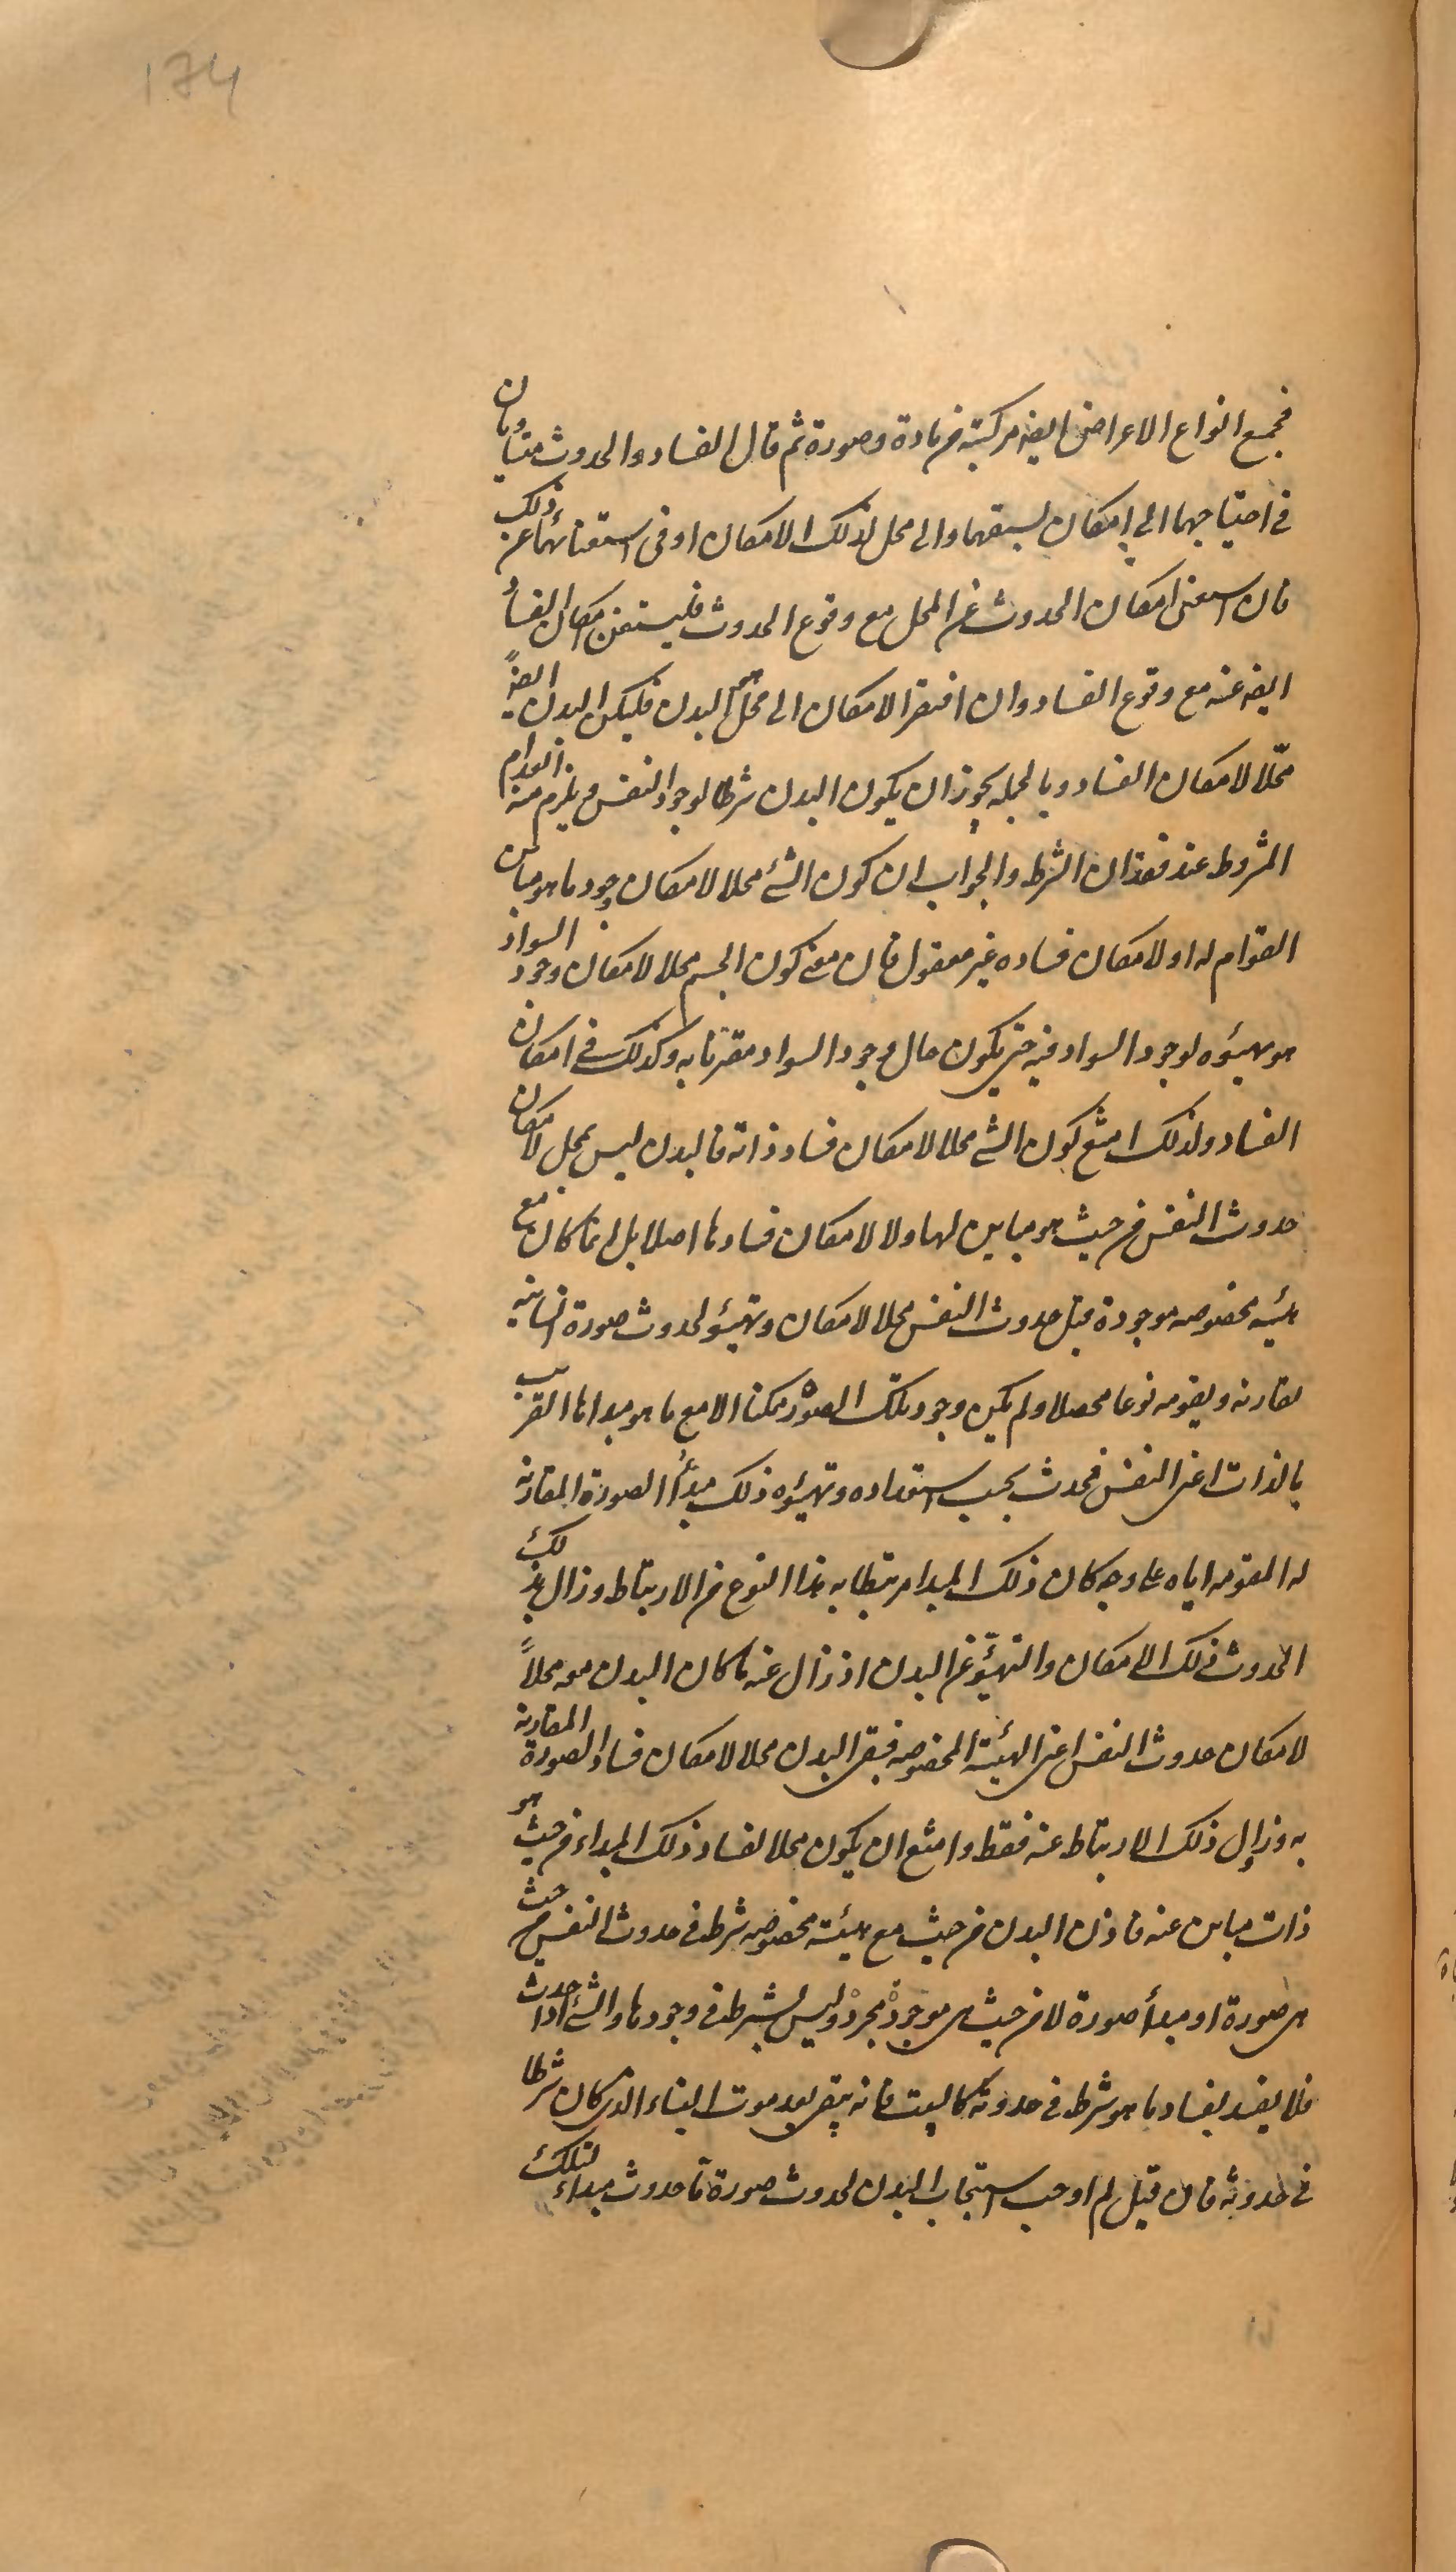 174
فجميع انواع الاعراض ايضه مركبته من مادة وصورة ثم قال الفساد والحدوث متساويان
فى احتياجهما الى امكان يسبقهما والى محل لذلك الامكان او فى استغنائهما عن ذلك
فان استغنى امكان الحدوث عن المحل مع وقوع الحدوث فليستغن امكان الفساد
ايضه عنه مع وقوع الفساد وان افتقر الامكان الى محل هو البدن فليكن البدن ايضهً
محلّا لامكان الفساد وبالجمله يجوز ان يكون البدن شرطا لوجود النفس و يلزم منه انعدام
المشروط عند فقدان الشرط والجواب ان كون الشئ محلا لامكان وجود ما هو مباين
القوام له او لامكان فساده غير معقول فان معنى كون الجسم محلا لامكان وجود السواد
هو تهيئوه لوجود السواد فيه حتى يكون حال وجود السواد مقترنا به وكذلك فى امكان
الفساد ولذلك امتنع كون الشئ محلا لامكان فساد ذاته فالبدن ليس بمحل لامكان
حدوث النفس من حيث هو مباين لها ولا لامكان فسادها اصلا بل انما كان مع
هيئه مخصوصه موجودة قبل حدوث النفس محلا لامكان وتهيئو لحدوث صورة انسانيه
تقارنه ويقومه نوعا محصلا ولم يكن وجود تلك الصورة ممكنا الا مع ما هو مبداها القريب
بالذات اعنى النفس فحدث بحسب استعداده وتهيئوه ذلك مبدأ الصورة المقارنه
له المقومه اياه على وجه كان ذلك المبدا مرتبطا به هذا النوع من الارتباط وزال بذلك
الحدوث ذلك الامكان والتهيّؤ عن البدن اذ زال عنه ما كان البدن معه محلاً
لامكان حدوث النفس اعنى الهيئة المخصوصه فبقى البدن محلا لامكان فساد الصورة المقارنه
به وزال ذلك الارتباط عنه فقط وامتنع ان يكون محلا لفساد ذلك المبداء من حيث هو
ذات مباين عنه فاذن البدن من حيث مع هيئته مخصوصه شرط فى حدوث النفس من حيث
هى صورة او مبدأ صورة لا من حيث هى موجود مجرد وليس بشرط فى وجودها والشئ اذا حدث
فلا يفسد بفساد ما هو شرط فى حدوثه كالبيت فانه يبقى بعد موت البناء الذى كان شرطا
فى حدوثه فان قيل لم اوجب استيجاب البدن لحدوث صورة ما حدوث مبداء لتلك